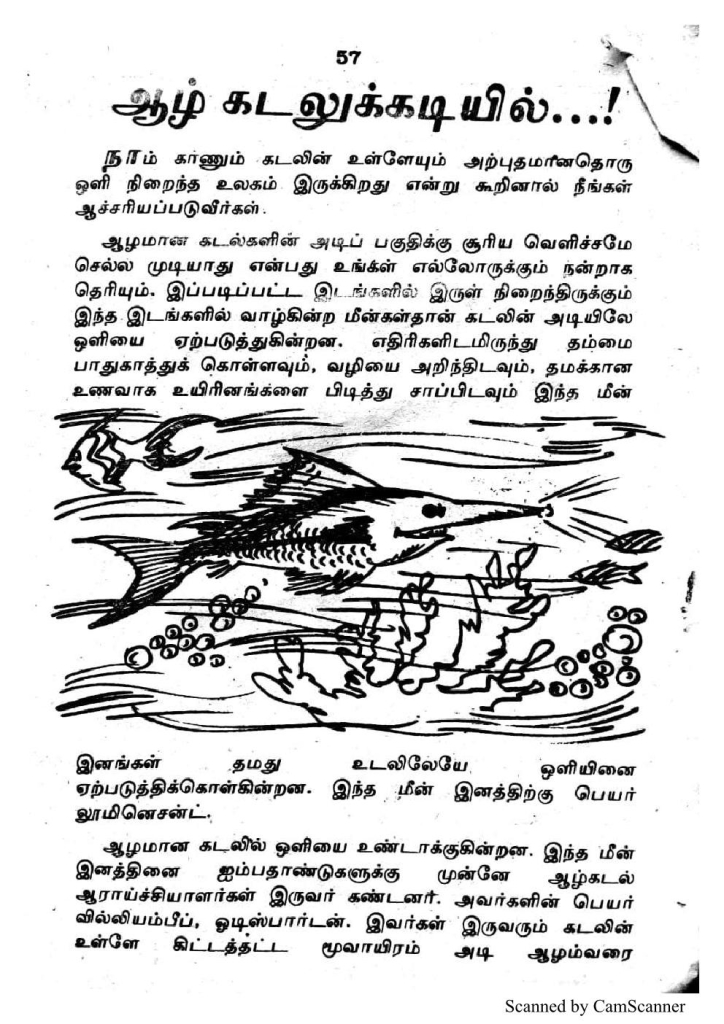 57
ஆழ் கடலுக்கடியில்...!
நாம் காணும் கடலின் உள்ளேயும் அற்புதமானதொரு
ஒளி நிறைந்த உலகம் இருக்கிறது என்று கூறினால் நீங்கள்
ஆச்சரியப்படுவீர்கள்.
ஆழமான கடல்களின் அடிப் பகுதிக்கு சூரிய வெளிச்சமே
செல்ல முடியாது என்பது உங்கள் எல்லோருக்கும் நன்றாக
தெரியும். இப்படிப்பட்ட இடங்களில் இருள் நிறைந்திருக்கும்
இந்த இடங்களில் வாழ்கின்ற மீன்கள்தான் கடலின் அடியிலே
ஒளியை ஏற்படுத்துகின்றன. எதிரிகளிடமிருந்து தம்மை
பாதுகாத்துக் கொள்ளவும், வழியை அறிந்திடவும், தமக்கான
உணவாக உயிரினங்களை பிடித்து சாப்பிடவும் இந்த மீன்
இனங்கள் தமது உடலிலேயே ஒளியினை
ஏற்படுத்திக்கொள்கின்றன. இந்த மீன் இனத்திற்கு பெயர்
லூமினெசன்ட்.
ஆழமான கடலில் ஒளியை உண்டாக்குகின்றன. இந்த மீன்
இனத்தினை ஐம்பதாண்டுகளுக்கு முன்னே ஆழ்கடல்
ஆராய்ச்சியாளர்கள் இருவர் கண்டனர். அவர்களின் பெயர்
வில்லியம்பீப், ஓடிஸ்பார்டன். இவர்கள் இருவரும் கடலின்
உள்ளே கிட்டத்தட்ட மூவாயிரம் அடி ஆழம்வரை
Scanned by CamScanner